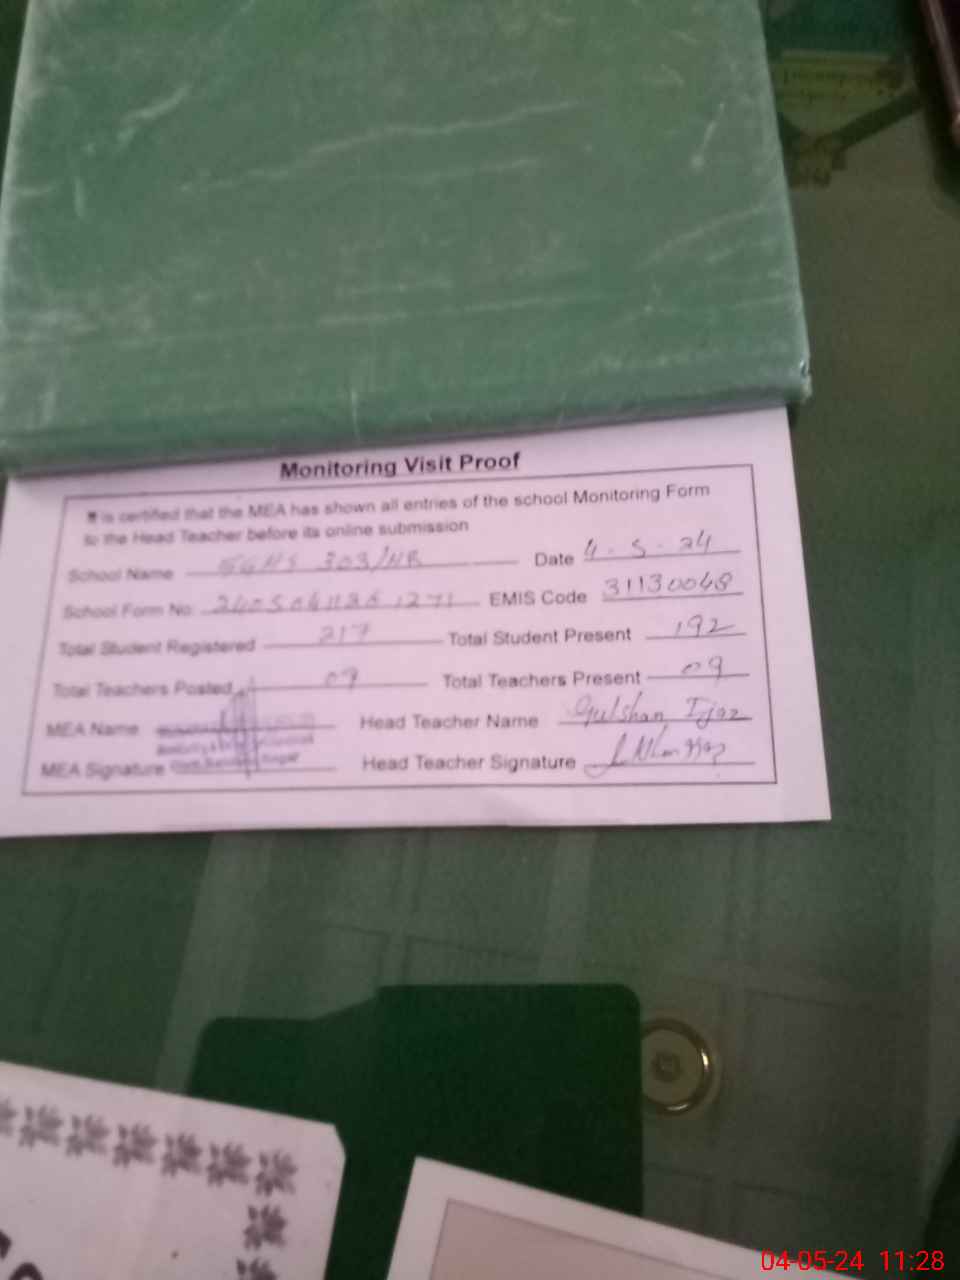 Monitoring Visit Proof
It is certified that the MEA has shown all entries of the school Monitoring Form
to the Head Teacher before its online submission
School Name 303/HR Date 4.5.24
School Form No EMIS Code 31130048
Total Student Registered 217 Total Student Present 192
Total Teachers Posted 09 Total Teachers Present 09
MEA Name Head Teacher Name Gulshan Ijaz
MEA Signature Head Teacher Signature
04-05-24 11:28